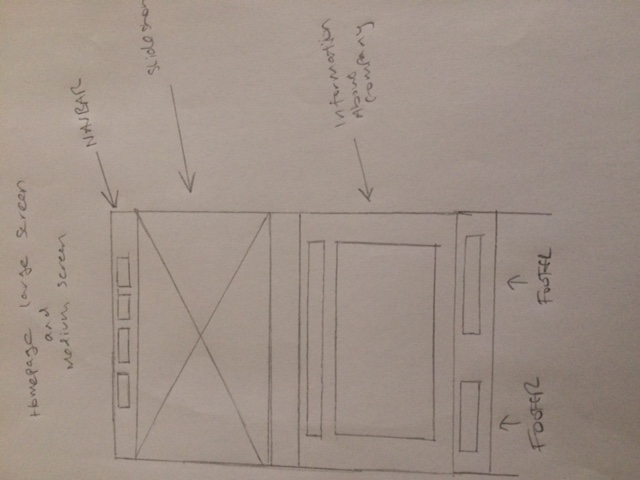 Homepage large screen
and
Medium screen
NAVBAR
Slideshow
Information
About
Company
FOOTER
FOOTER